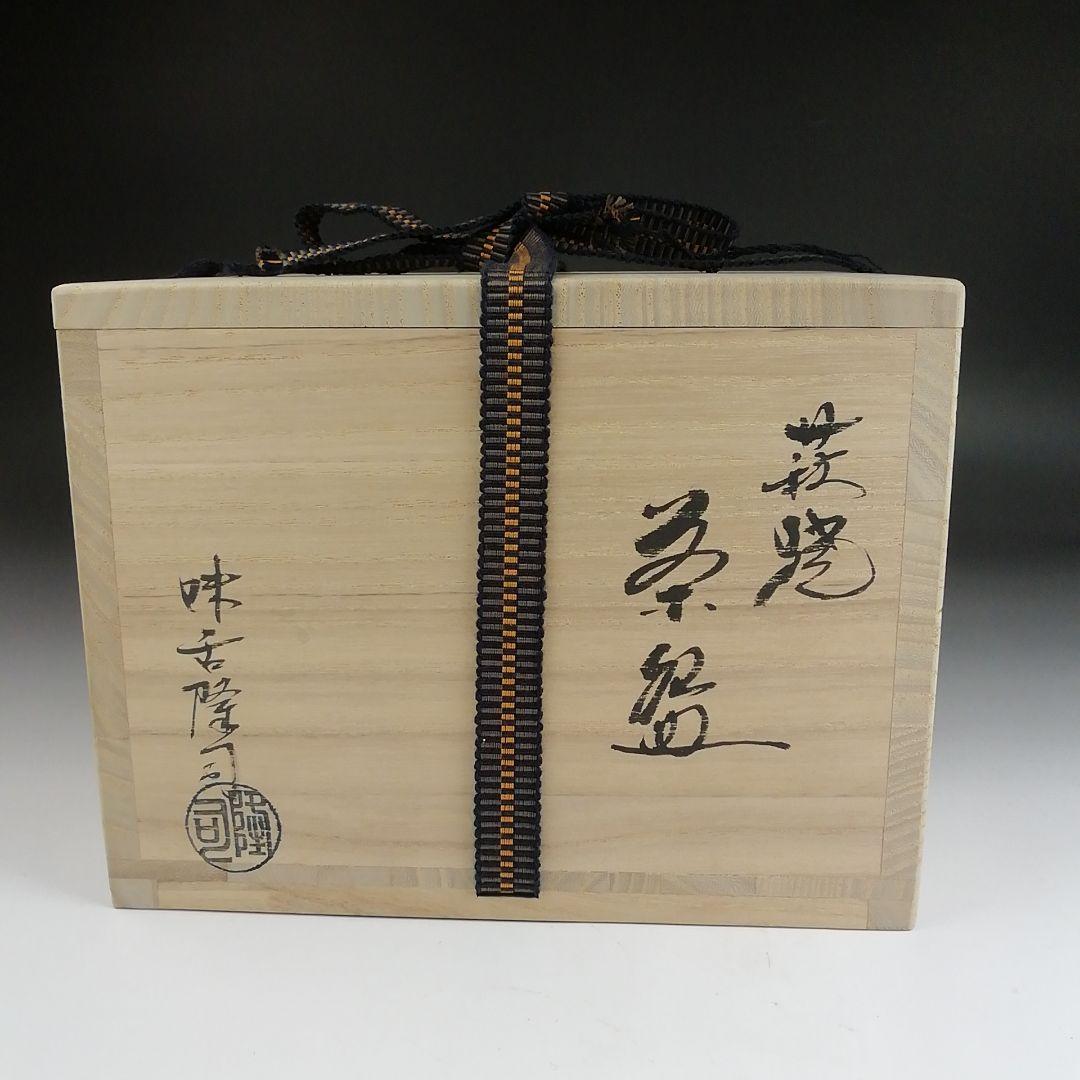 萩焼
茶盌
味舌隆司
隆司